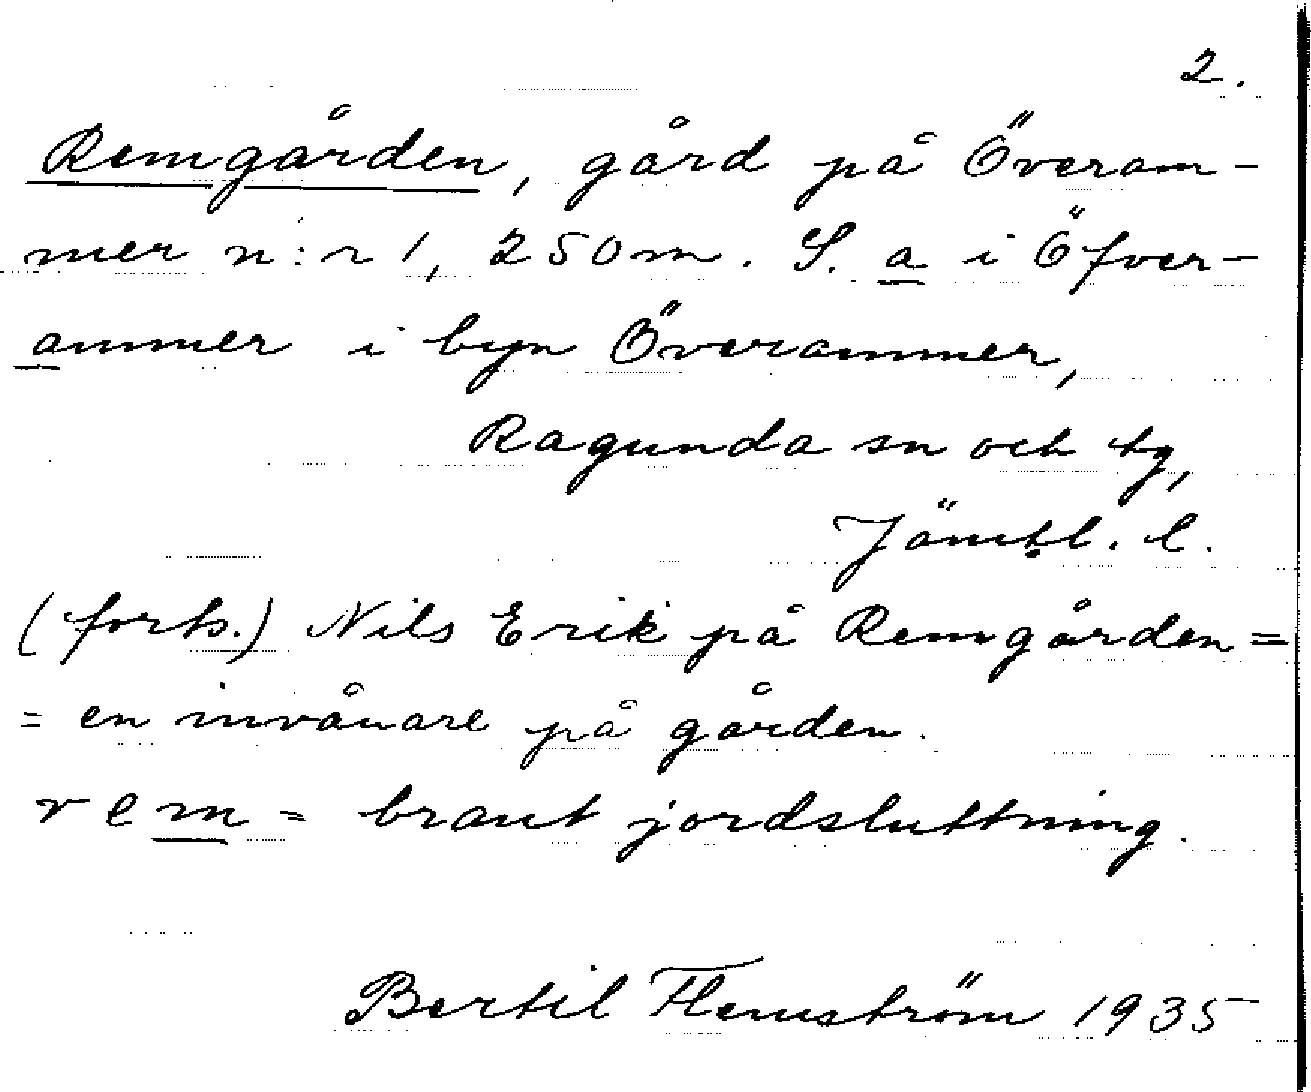 2.
Remgården, gård på Överam-
mer n:r 1, 250 m. S. a i Öfver-
ammer i byn Överammer,
Ragunda sn och tg,
Jämtl. l.
(forts.) Nils Erik på Remgården =
= en invånare på gården.
rem = brant jordsluttning.
Bertil Flemström 1935